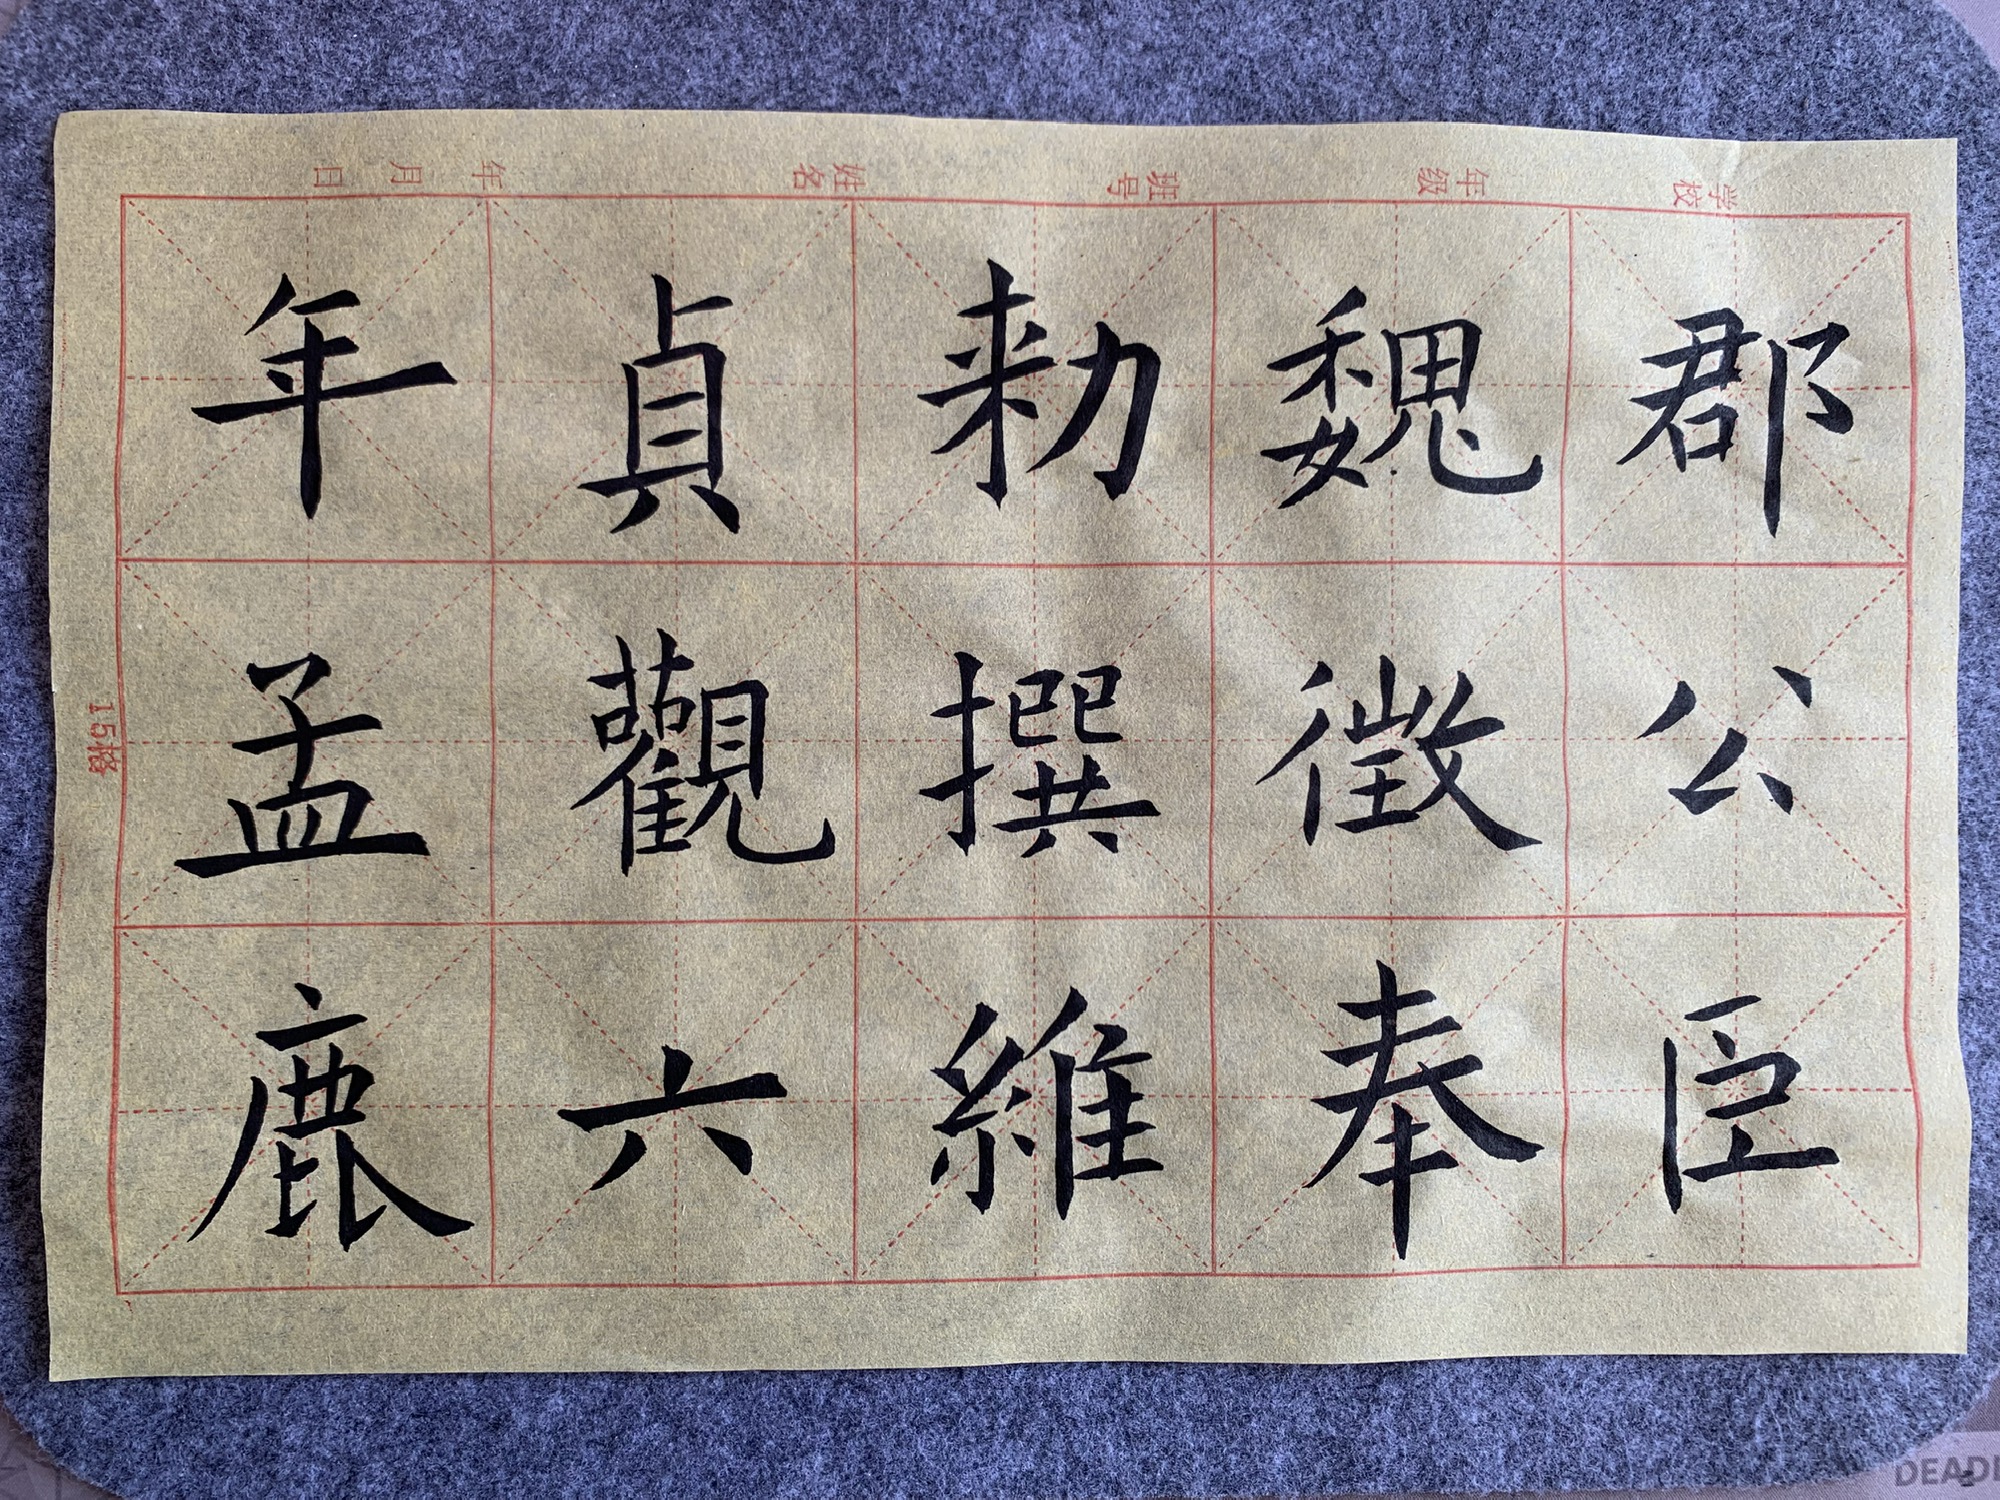 郡公臣
魏徵奉
勑撰維
貞觀六
年孟鹿
学校 年级 班号 姓名 年 月 日
15格